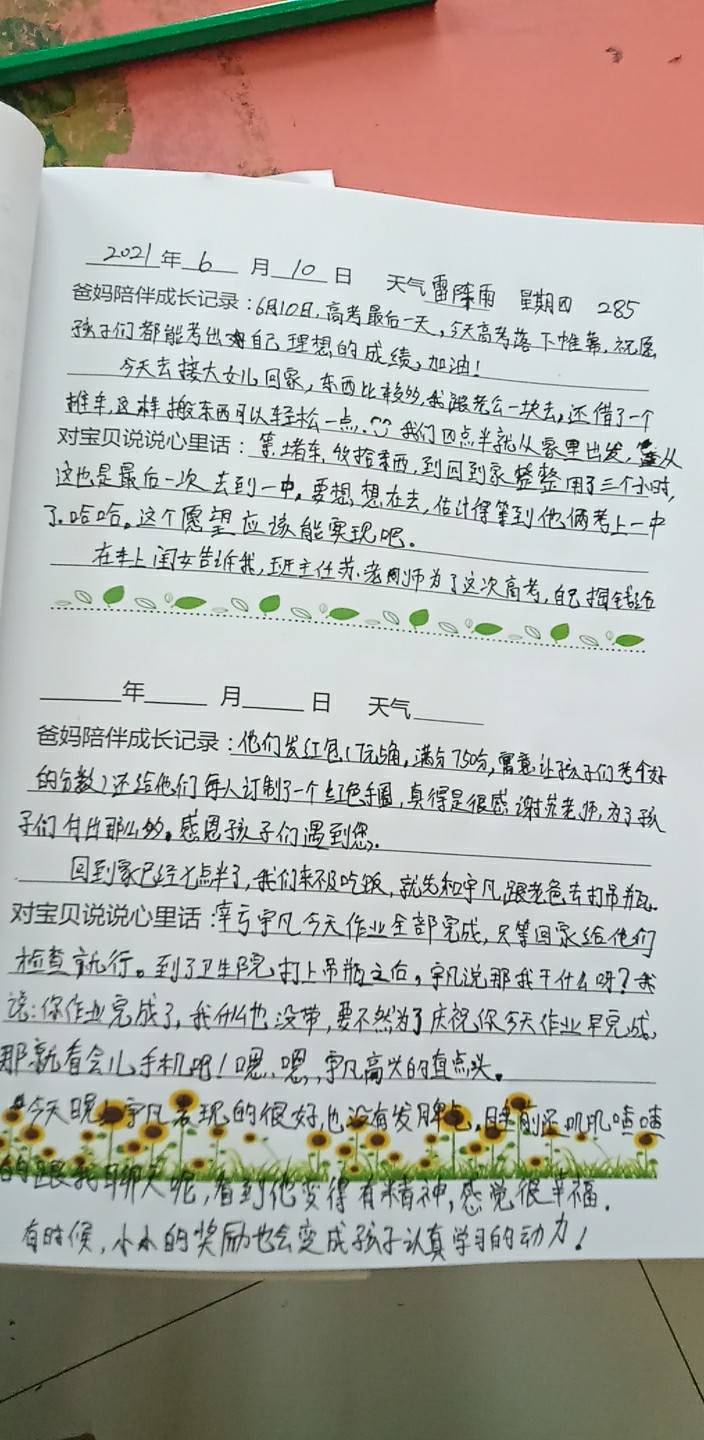 2021年 6 月 10 日 天气 雷阵雨 星期四 285
爸妈陪伴成长记录:6月10日,高考最后一天,今天高考落下帷幕,祝愿
孩子们都能考出自己理想的成绩,加油!
今天去接大女儿回家,东西比较多,我跟老公一块去,还借了一个
推车,这样搬东西可以轻松一点。我们四点半就从家里出发,从
对宝贝说说心里话:等堵车,收拾东西,到回到家整整用了三个小时,
这也是最后一次去到一中。要想,想在去,估计得等到他俩考上一中
了。哈哈。这个愿望应该能实现吧。
在车上闺女告诉我,班主任苏老师为了这次高考,自己掏钱给
年 月 日 天气
爸妈陪伴成长记录:他们发红包(7元5角,满分750分,寓意让孩子们考个好
的分数)还给他们每人订制了一个红色手圈,真得是很感谢苏老师,为了孩
子们付出那么多。感恩孩子们遇到您。
回到家已经七点半了,我们来不及吃饭,就先和宇凡跟老爸去打吊瓶。
对宝贝说说心里话:幸亏宇凡今天作业全部完成,只等回家给他们
检查就行。到了卫生院,打上吊瓶之后,宇凡说那我干什么呀?我
说:你作业完成了,我什么也没带,要不然为了庆祝你今天作业早完成,
那就看会儿手机吧!嗯、嗯,宇凡高兴的直点头。
今天晚上宇凡表现的很好,也没有发脾气,睡前还叽叽喳喳
的跟我聊天呢,看到他变得有精神,感觉很幸福.
有时候,小小的奖励也会变成孩子认真学习的动力!